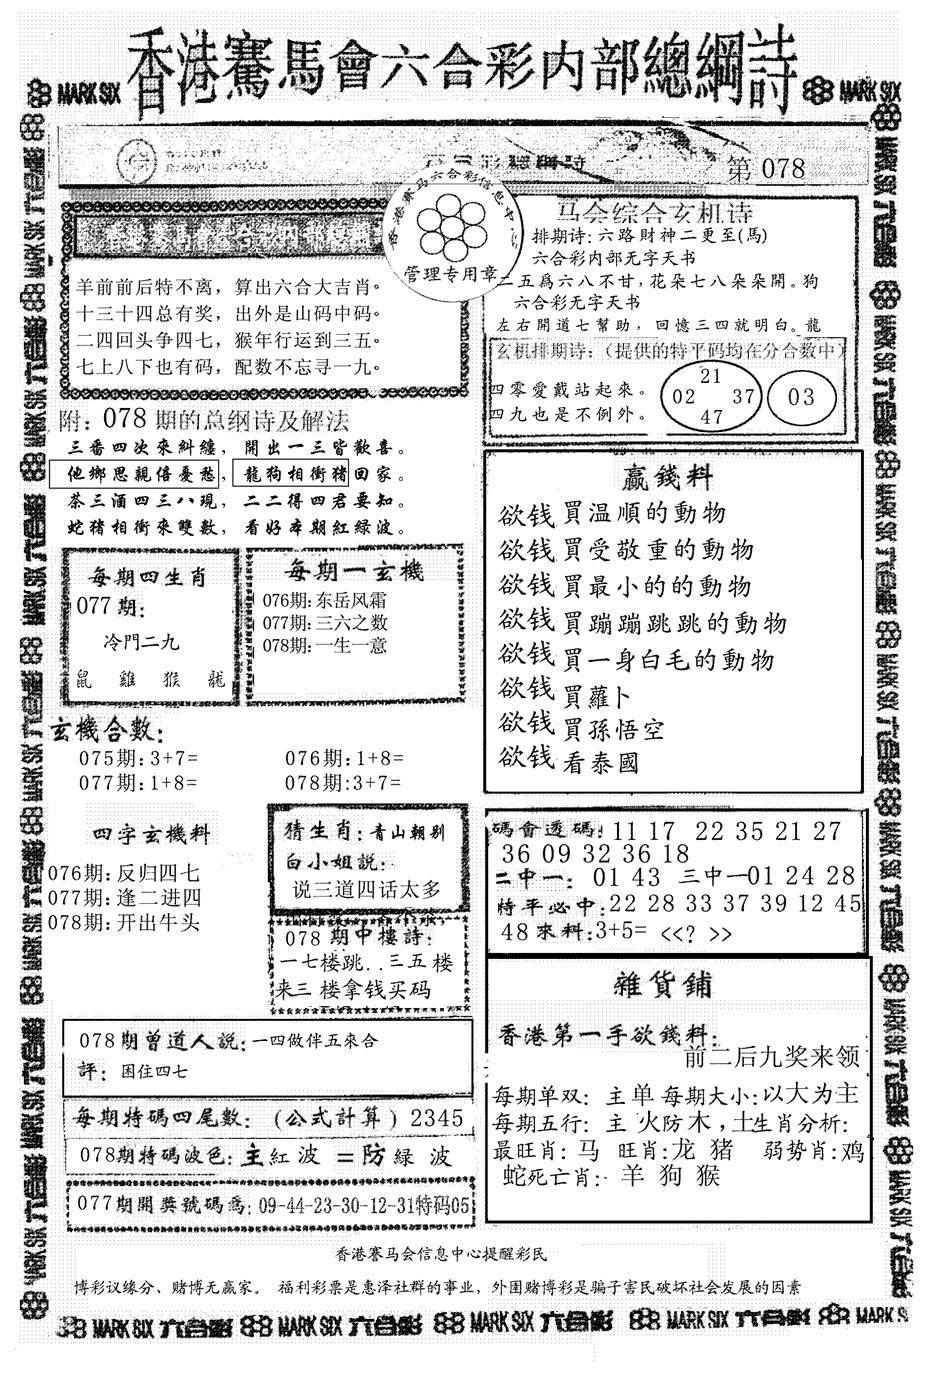 香港賽馬會六合彩内部總綱詩
MARK SIX
MARK SIX
第078
香港赛马六合彩信息中心
管理专用章
羊前前后特不离，算出六合大吉肖。
十三十四总有奖，出外是山码中码。
二四回头争四七，猴年行运到三五。
七上八下也有码，配数不忘寻一九。
马会综合玄机诗
排期诗:六路財神二更至(馬)
六合彩内部无字天书
二五爲六八不甘,花朵七八朵朵開。狗
六合彩无字天书
左右開道七幫助，回憶三四就明白。龍
玄机排期诗:（提供的特平码均在分合数中）
四零愛戴站起來。
四九也是不例外。
21
02 37
47
03
附: 078期的总纲诗及解法
三番四次來糾纏，開出一三皆歡喜。
他鄉思親倍憂愁，龍狗相衝猪回家。
茶三酒四三八現，二二得四君要知。
蛇猪相衝來雙數，看好本期紅绿波。
每期四生肖
077期:
冷門二九
鼠 雞 猴 龍
每期一玄機
076期:东岳风霜
077期:三六之数
078期:一生一意
赢錢料
欲钱買温順的動物
欲钱買受敬重的動物
欲钱買最小的的動物
欲钱買蹦蹦跳跳的動物
欲钱買一身白毛的動物
欲钱買蘿卜
欲钱買孫悟空
欲钱看泰國
玄機合數:
075期:3+7= 076期:1+8=
077期:1+8= 078期:3+7=
四字玄機料
076期:反归四七
077期:逢二进四
078期:开出牛头
猜生肖:青山朝别
白小姐説:
说三道四话太多
078期中樓詩:
一七楼跳..三五楼
来三楼拿钱买码
碼會透碼:11 17 22 35 21 27
36 09 32 36 18
二中一: 01 43 三中一01 24 28
特平必中:22 28 33 37 39 12 45
48來料:3+5= <<? >>
雜貨鋪
香港第一手欲錢料:
前二后九奖来领
每期单双: 主单 每期大小:以大为主
每期五行: 主 火防木,土生肖分析:
最旺肖:马 旺肖:龙 猪 弱势肖:鸡
蛇死亡肖: 羊 狗 猴
078期曾道人説:一四做伴五來合
評: 困住四七
每期特碼四尾數: (公式計算) 2345
078期特碼波色:主紅波 =防緑 波
077期開獎號碼爲:09-44-23-30-12-31特码05
香港赛马会信息中心提醒彩民
博彩议缘分、赌博无赢家。 福利彩票是惠泽社群的事业，外围赌博彩是骗子害民破坏社会发展的因素
MARK SIX 六合彩 MARK SIX 六合彩 MARK SIX 六合彩 MARK SIX 六合彩 MARK SIX